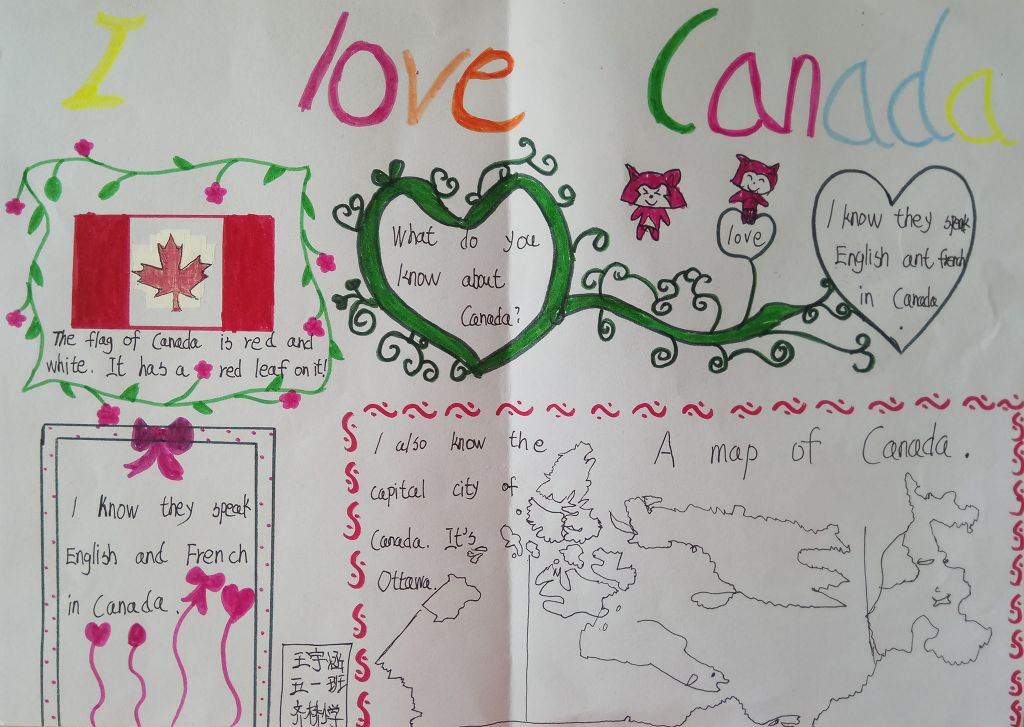 I love Canada
The flag of Canada is red and
white. It has a red leaf on it!
What do you
know about
Canada?
love
I know they speak
English ant french
in Canada.
I know they speak
English and French
in Canada.
I also know the
capital city of
Canada. It's
Ottawa.
A map of Canada.
王宇涵
五一班
齐林学